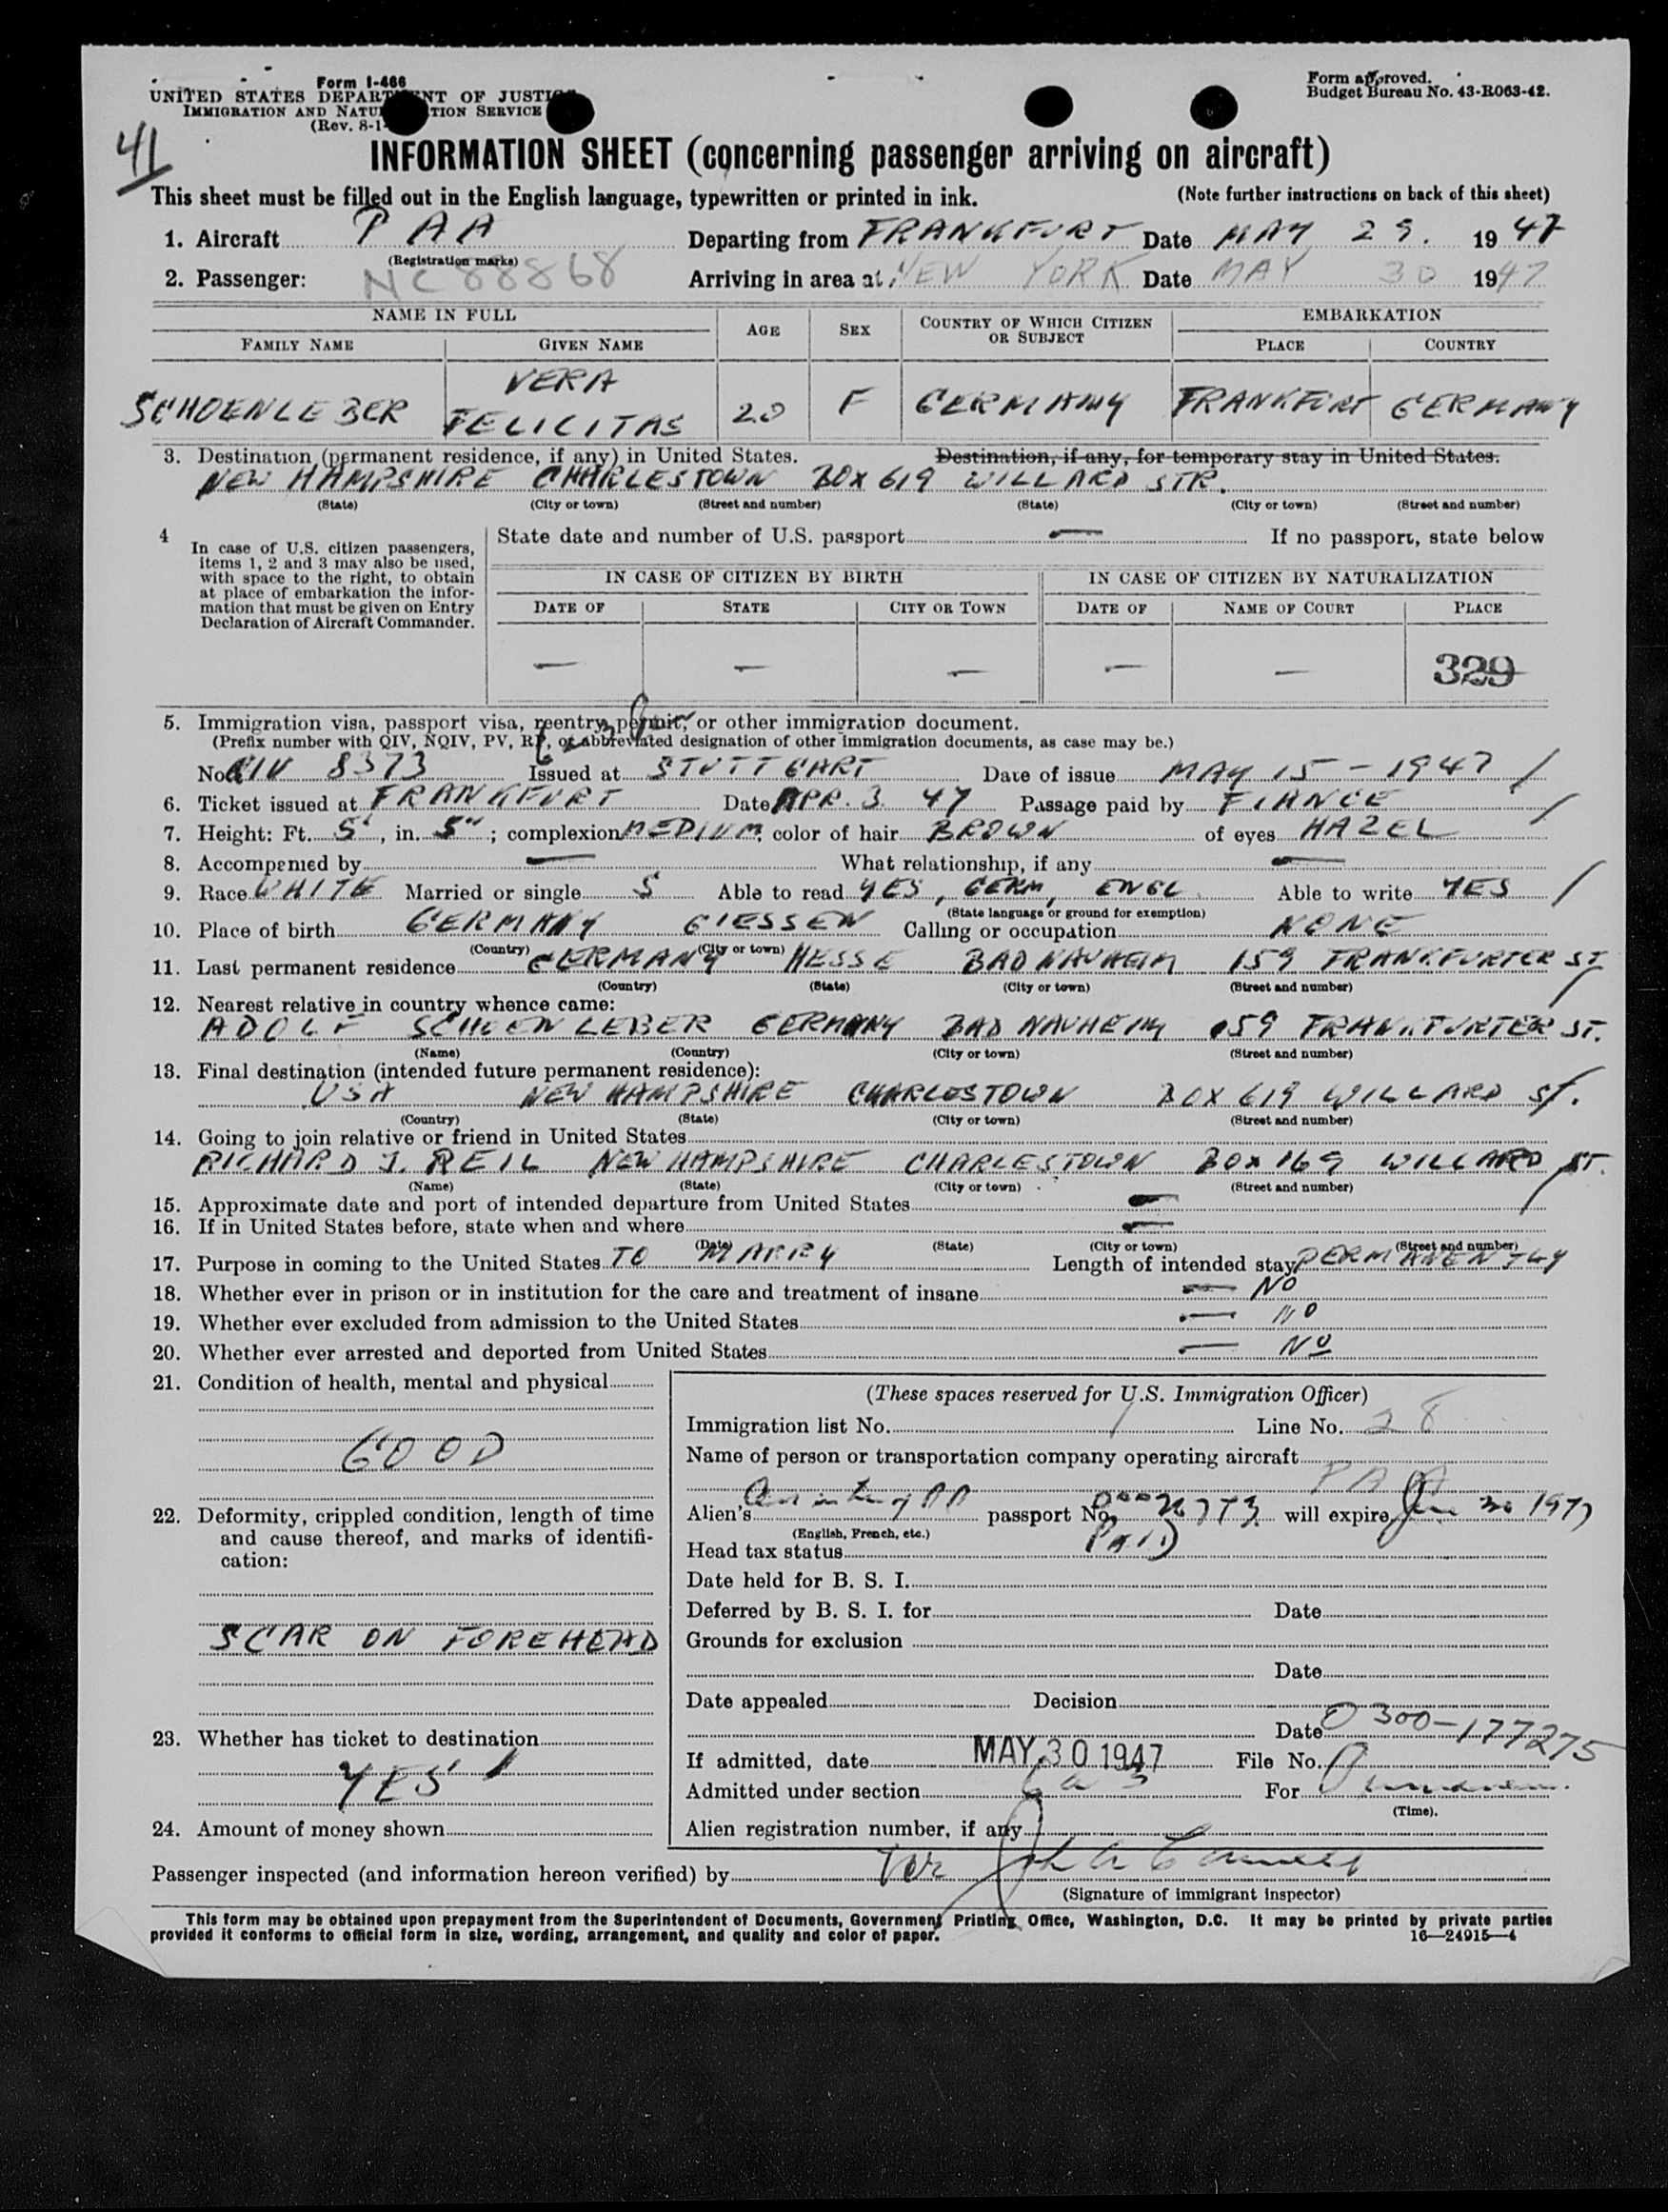 Form I-466
UNITED STATES DEPARTMENT OF JUSTICE
IMMIGRATION AND NATURALIZATION SERVICE
(Rev. 8-1-
Form approved.
Budget Bureau No. 43-R063-42.
41
INFORMATION SHEET (concerning passenger arriving on aircraft)
This sheet must be filled out in the English language, typewritten or printed in ink. (Note further instructions on back of this sheet)
1. Aircraft PAA Departing from FRANKFURT Date MAY 29. 1947
(Registration marks)
2. Passenger: NC88868 Arriving in area at NEW YORK Date MAY 30 1947
NAME IN FULL AGE SEX COUNTRY OF WHICH CITIZEN OR SUBJECT EMBARKATION
FAMILY NAME GIVEN NAME PLACE COUNTRY
SCHOENLEBER VERA FELICITAS 20 F GERMANY FRANKFURT GERMANY
3. Destination (permanent residence, if any) in United States. Destination, if any, for temporary stay in United States.
NEW HAMPSHIRE CHARLESTOWN BOX 619 WILLARD STR.
(State) (City or town) (Street and number) (State) (City or town) (Street and number)
4 In case of U.S. citizen passengers, items 1, 2 and 3 may also be used, with space to the right, to obtain at place of embarkation the information that must be given on Entry Declaration of Aircraft Commander.
State date and number of U.S. passport — If no passport, state below
IN CASE OF CITIZEN BY BIRTH IN CASE OF CITIZEN BY NATURALIZATION
DATE OF STATE CITY OR TOWN DATE OF NAME OF COURT PLACE
— — — — — 329
5. Immigration visa, passport visa, reentry permit, or other immigration document.
(Prefix number with QIV, NQIV, PV, RP, or abbreviated designation of other immigration documents, as case may be.)
No. QIV 8373 Issued at STUTTGART Date of issue MAY 15 - 1947
6. Ticket issued at FRANKFURT Date APR. 3 47 Passage paid by FIANCE
7. Height: Ft. 5', in. 5"; complexion MEDIUM; color of hair BROWN of eyes HAZEL
8. Accompanied by — What relationship, if any —
9. Race WHITE Married or single S Able to read YES, GERM, ENGL. Able to write YES
(State language or ground for exemption)
10. Place of birth GERMANY GIESSEN Calling or occupation NONE
(Country) (City or town)
11. Last permanent residence GERMANY HESSE BAD NAUHEIM 159 FRANKFURTER ST
(Country) (State) (City or town) (Street and number)
12. Nearest relative in country whence came:
ADOLF SCHOENLEBER GERMANY BAD NAUHEIM 159 FRANKFURTER ST.
(Name) (Country) (City or town) (Street and number)
13. Final destination (intended future permanent residence):
USA NEW HAMPSHIRE CHARLESTOWN BOX 619 WILLARD St.
(Country) (State) (City or town) (Street and number)
14. Going to join relative or friend in United States
RICHARD J. REIL NEW HAMPSHIRE CHARLESTOWN BOX 169 WILLARD ST.
(Name) (State) (City or town) (Street and number)
15. Approximate date and port of intended departure from United States —
16. If in United States before, state when and where —
(Date) (State) (City or town) (Street and number)
17. Purpose in coming to the United States TO MARRY Length of intended stay PERMANENTLY
18. Whether ever in prison or in institution for the care and treatment of insane — NO
19. Whether ever excluded from admission to the United States — NO
20. Whether ever arrested and deported from United States — NO
21. Condition of health, mental and physical
GOOD
22. Deformity, crippled condition, length of time and cause thereof, and marks of identification:
SCAR ON FOREHEAD
23. Whether has ticket to destination
YES
24. Amount of money shown
(These spaces reserved for U.S. Immigration Officer)
Immigration list No. 1 Line No. 28
Name of person or transportation company operating aircraft
PAA
Alien's passport No. will expire
(English, French, etc.)
Head tax status Paid
Date held for B. S. I.
Deferred by B. S. I. for Date
Grounds for exclusion
Date
Date appealed Decision
Date 0300-177275
If admitted, date MAY 30 1947 File No.
Admitted under section 6 a 3 For
(Time).
Alien registration number, if any
Passenger inspected (and information hereon verified) by
(Signature of immigrant inspector)
This form may be obtained upon prepayment from the Superintendent of Documents, Government Printing Office, Washington, D.C. It may be printed by private parties
provided it conforms to official form in size, wording, arrangement, and quality and color of paper. 16—24915—4